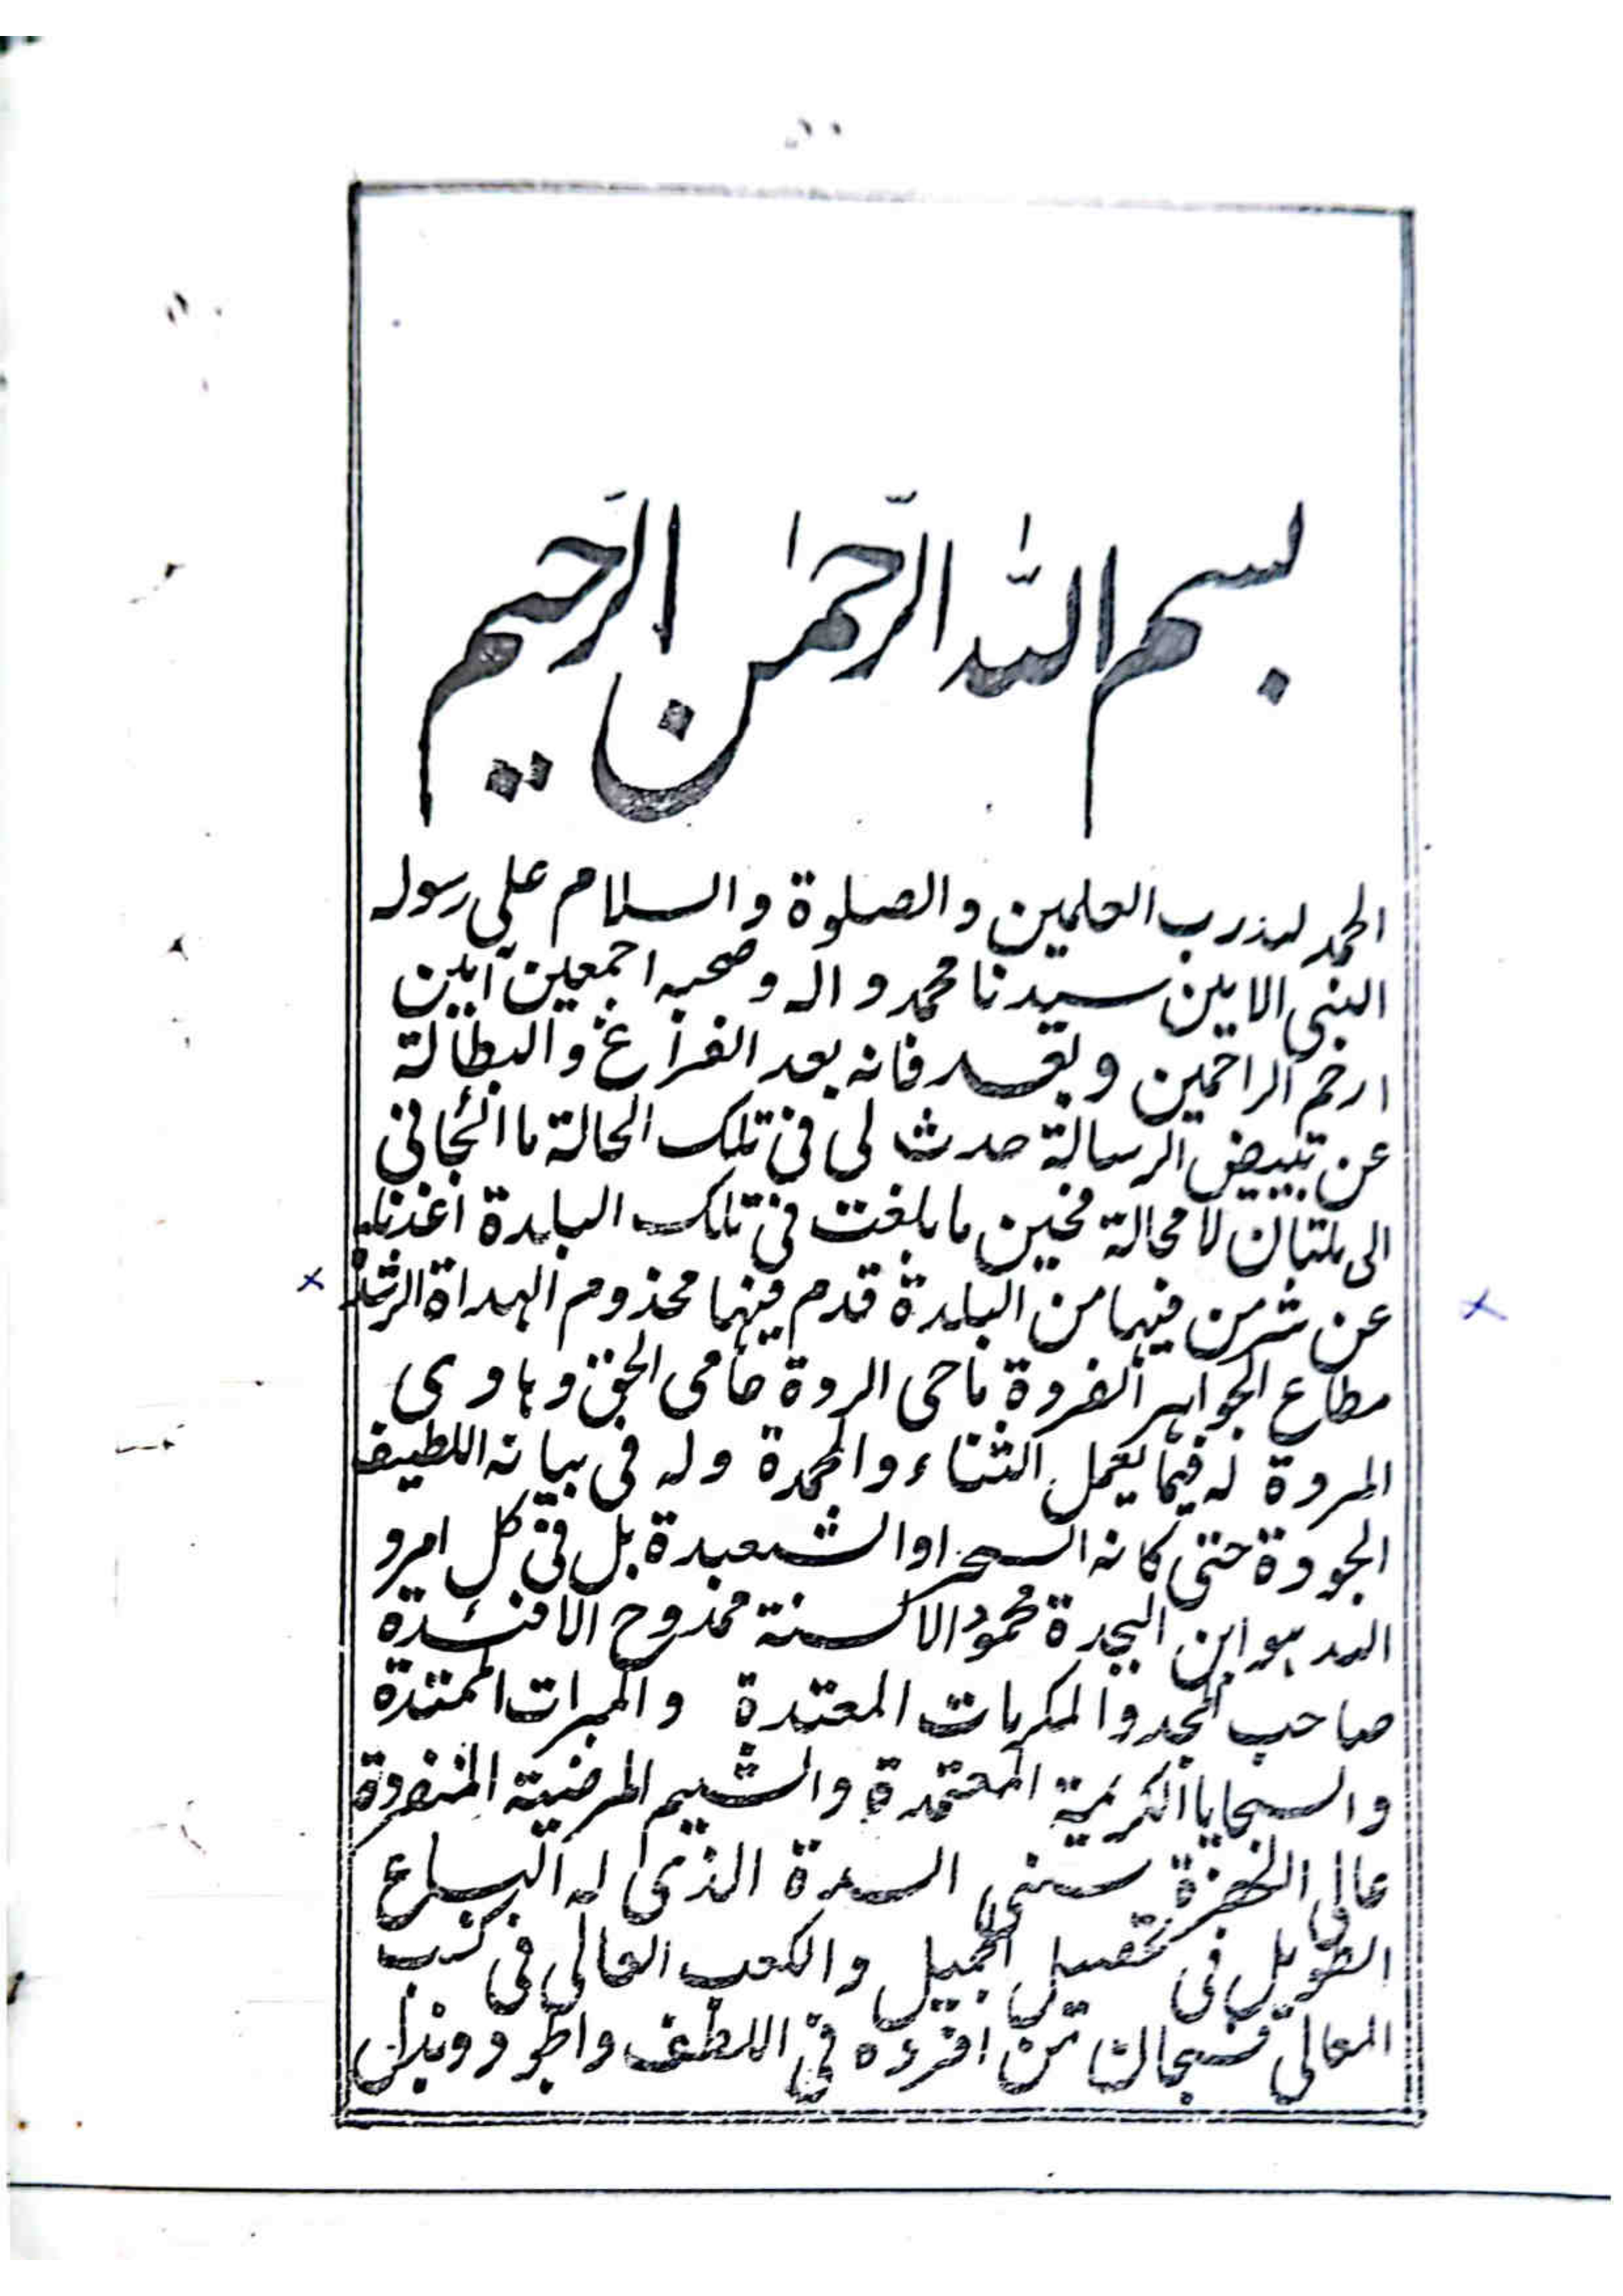 بسم الله الرّحمٰن الرّحيم
الحمد لله رب العلمين و الصلوة و السلام على رسوله
النبى الامين سيدنا محمد و اله و صحبه اجمعين آمين
ارحم الراحمين و بعد فانه بعد الفراغ و البطالة
عن تبييض الرسالة حدث لى فى تلك الحالة ما الجانى
الى ملتان لا محالة فحين ما بلغت فى تلك البلدة
عن شر من فيها من البلدة قدم فيها مخدوم الهداة
مطاع الجواهر الفردة ماحى الردة حامى الحق و هاوى
المروة له فيما يعمل الثناء و المحمدة وله فى بيانه اللطيف
الجودة حتى كانه السحر او الشعبدة بل فى كل امر و
الله هو ابن البجدة محمود الالسنة ممدوح الافئدة
صاحب المجد و المكرمات المعتدة و المبرات الممتدة
و السجايا الكريمة المعتمدة و الشيم المرضية المنفردة
عالى سنى السدة الذى له الباع
الطويل فى تحصيل الجميل و الكعب العالى فى كسب
المعالى فسبحان من افرده فى اللطف و الجود و بذل